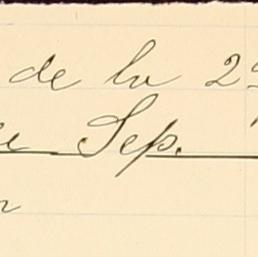 de la 2
Sep.